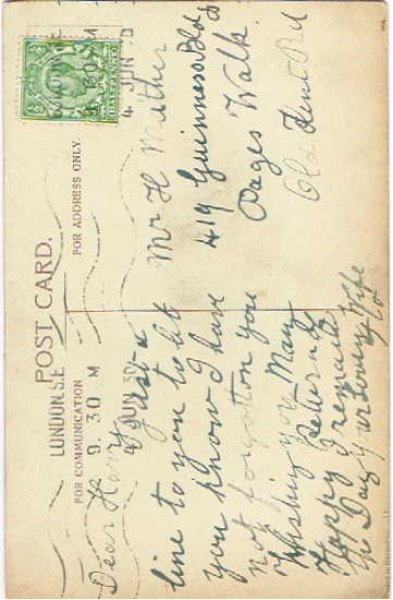 POST CARD.
FOR COMMUNICATION
FOR ADDRESS ONLY.
LONDON. S.E
9. 30 M
JUN
9. 30 M
4 JUN
Dear Harry Just a
line to you to let
you know I have
not forgotton you
Wishing you Many
Happy Returns
of the Day
I remain
Your Loving Wife
Mr H Mather
419 Guinness Bld
Pages Walk
Old Kent Rd